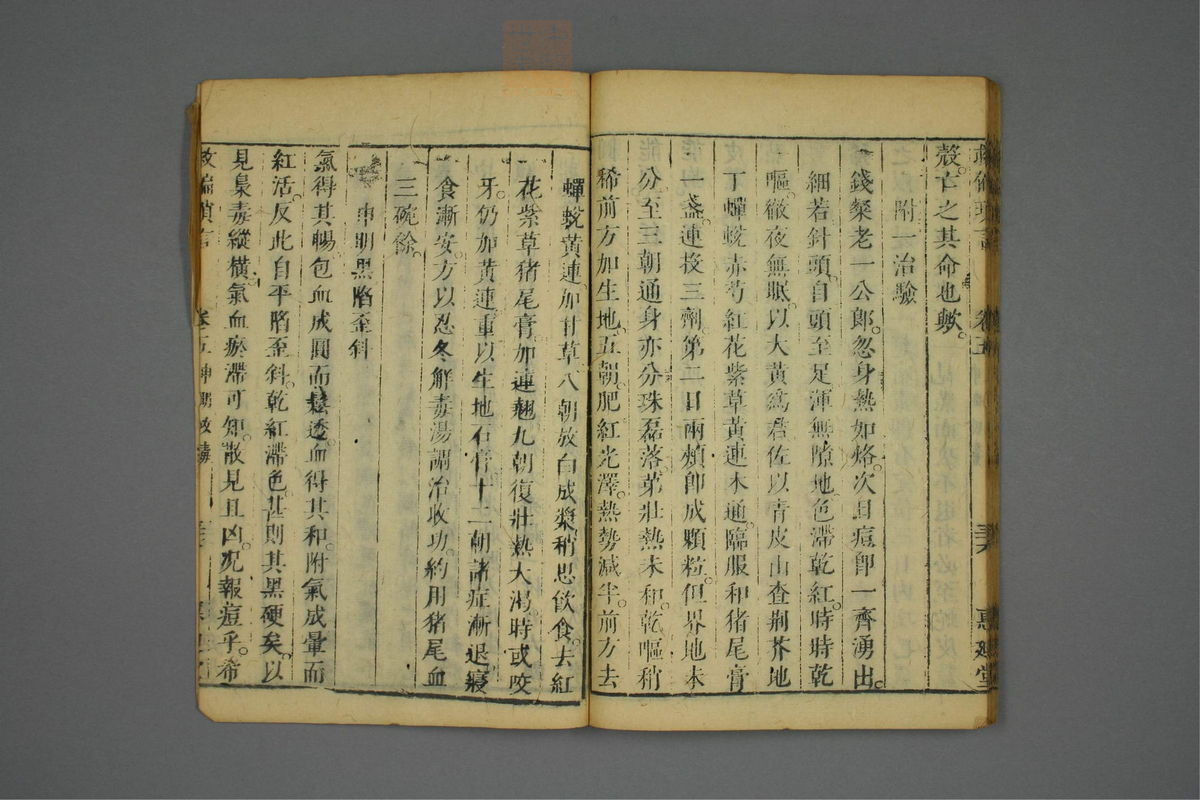 救偏瑣言 卷五 三六 惠廸堂
殼亡之其命也歟
附一治驗
錢槩老一公郎忽身熱如烙次日痘卽一齊湧出
細若針頭自頭至足渾無隙地色滯乾紅時時乾
嘔徹夜無眠以大黃爲君佐以青皮山查荆芥地
丁蟬蛻赤芍紅花紫草黃連木通臨服和猪尾膏
一盞連投三劑第二日兩頰卽成顆粒但界地未
分至三朝通身亦分珠磊落苐壯熱未和乾嘔稍
稀前方加生地五朝肥紅光澤熱勢減半前方去
蟬蛻黃連加甘草八朝放白成漿稍思飲食去紅
花紫草猪尾膏加連翹九朝復壯熱大渴時或咬
牙仍加黃連重以生地石膏十二朝諸症漸退寢
食漸安方以忍冬解毒湯調治收功約用猪尾血
三碗餘
申明黑陷歪斜
氣得其暢包血成圓而鬆透血得其和附氣成暈而
紅活反此自平陷歪斜乾紅滯色甚則其黑硬矣以
見梟毒縱橫氣血瘀滯可知散見且凶况報痘乎希
救偏瑣言 卷五 申明救壽 三六